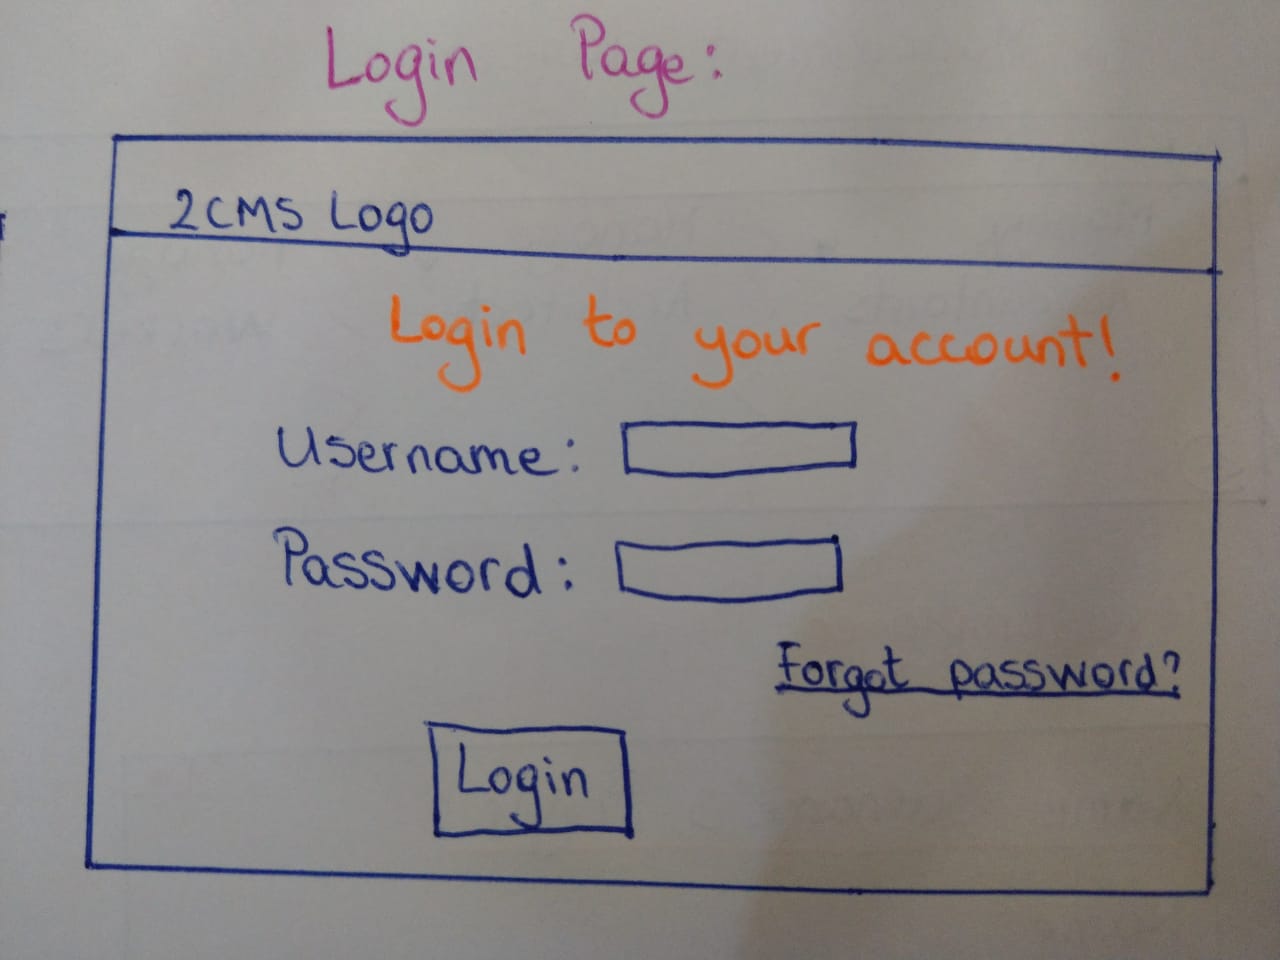 Login Page:
2CMS Logo
Login to your account!
Username:
Password:
Forgot password?
Login